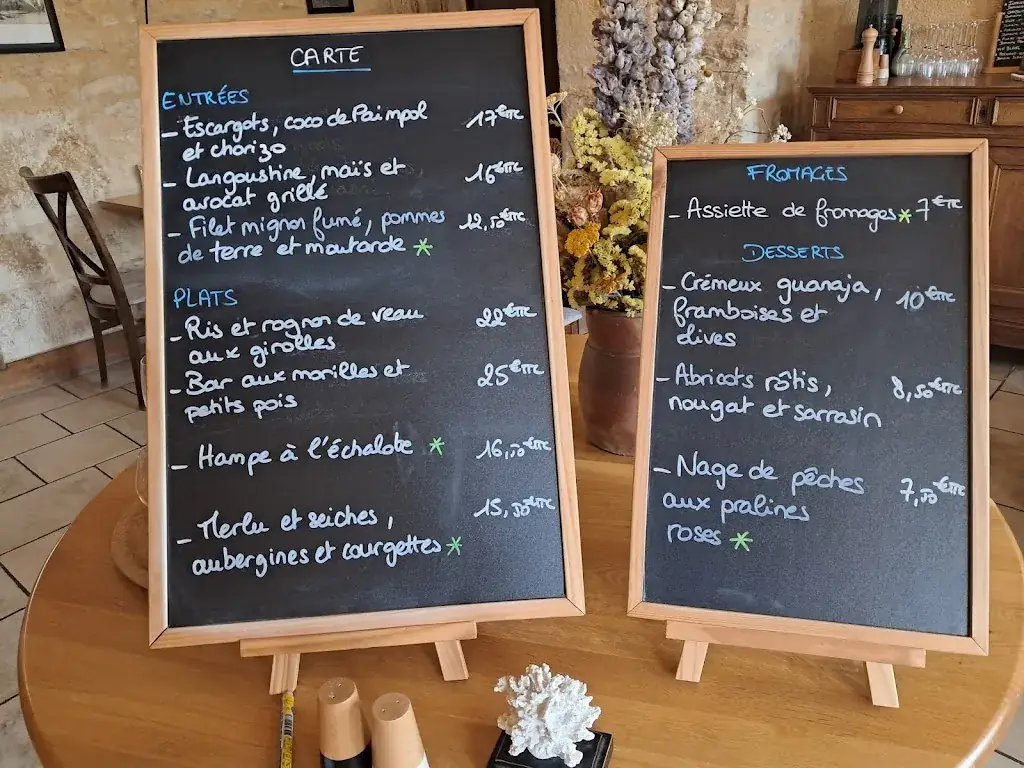 CARTE
ENTRÉES
- Escargots, coco de Paimpol 17 €TTC
et chorizo
- Langoustine, maïs et 16 €TTC
avocat grillé
- Filet mignon fumé, pommes 12,50 €TTC
de terre et moutarde *
PLATS
- Ris et rognon de veau 22 €TTC
aux girolles
- Bar aux morilles et 25 €TTC
petits pois
- Hampe à l'échalote * 16,50 €TTC
- Merlu et seiches, 15,50 €TTC
aubergines et courgettes *
FROMAGES
- Assiette de fromages * 7 €TTC
DESSERTS
- Crémeux guanaja, 10 €TTC
framboises et
olives
- Abricots rôtis, 8,50 €TTC
nougat et sarrasin
- Nage de pêches 7,50 €TTC
aux pralines
roses *